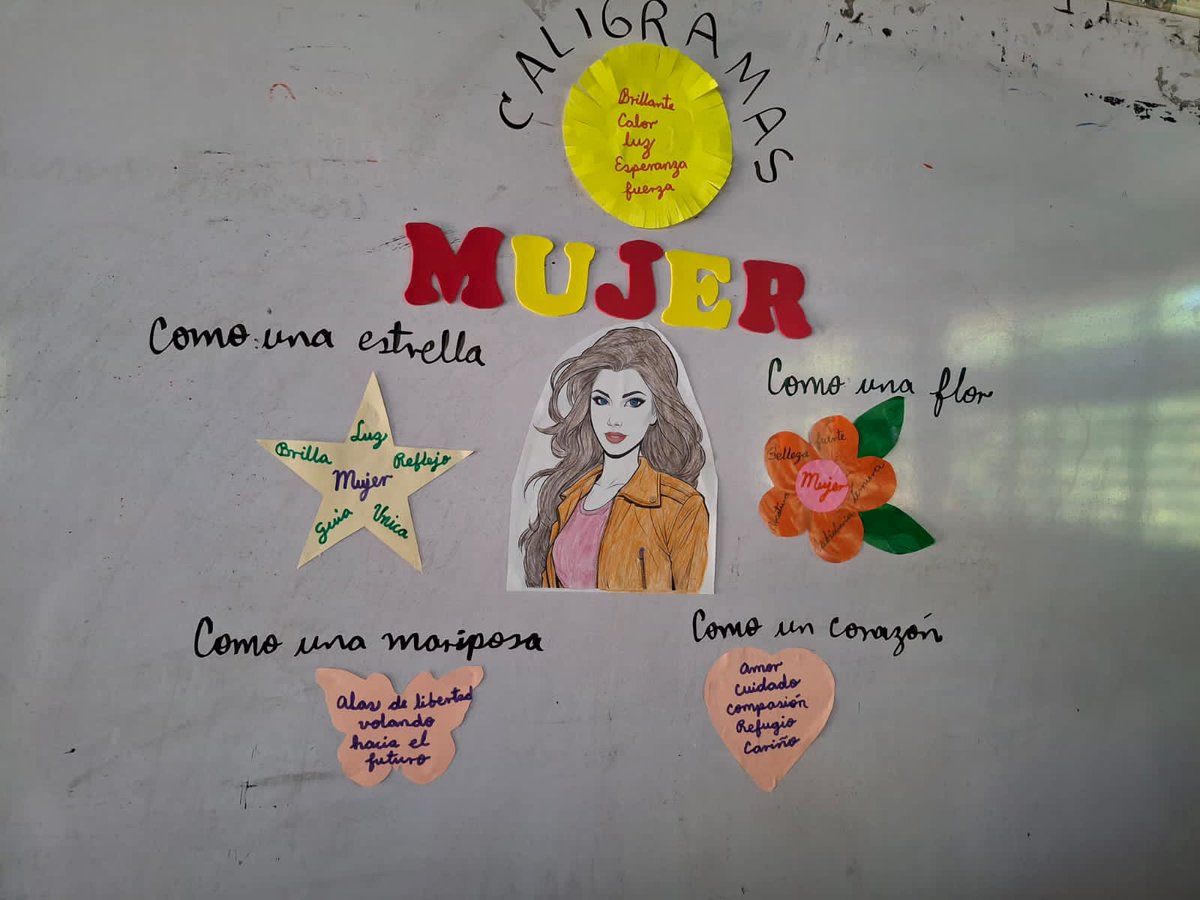 CALIGRAMAS
Brillante
Calor
luz
Esperanza
fuerza
MUJER
Como una estrella
Luz
Brilla
Reflejo
Mujer
Guia
Unica
Como una flor
Belleza
fuerte
Mujer
ternura
Sabiduria
Como una mariposa
Alas de libertad
volando
hacia el
futuro
Como un corazón
Amor
Cuidado
compasión
Refugio
Cariño